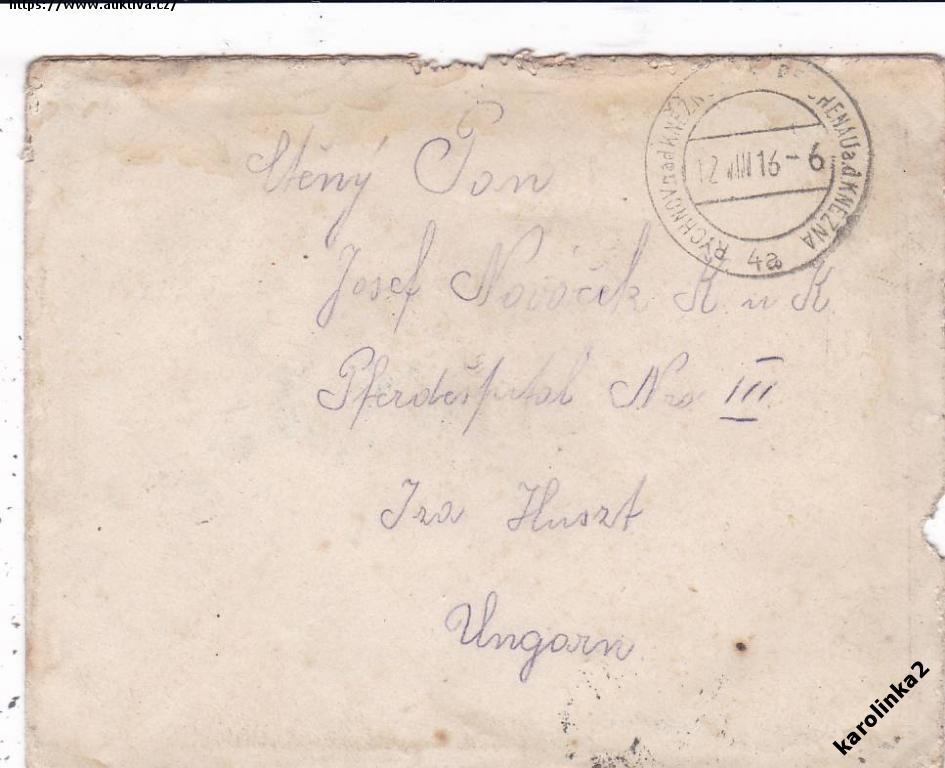 https://www.auktiva.cz/
RYCHNOV nad KNĚŽ REICHENAU a.d KNEZNA
12 VIII 16 - 6
4a
Ctěný Pan
Josef Nováček K u K
Pferdešpital Nro III
Iza Huszt
Ungarn
karolinka2